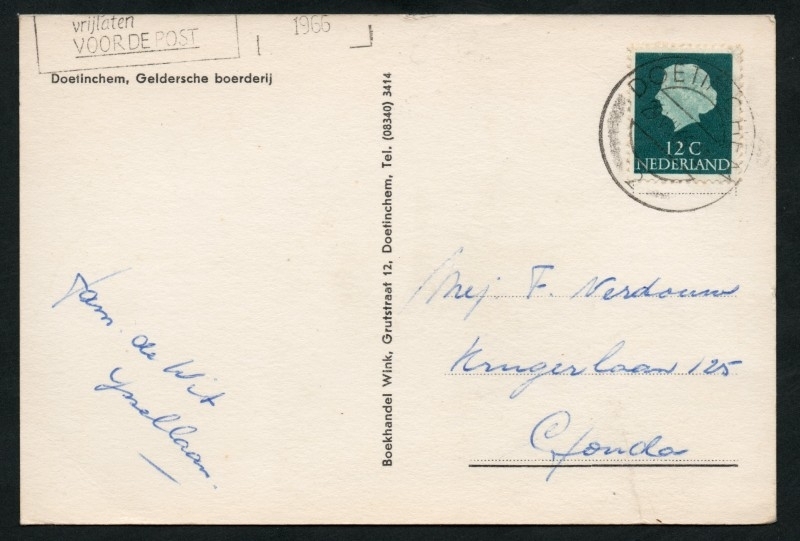 vrijlaten
VOOR DE POST
1966
Doetinchem, Geldersche boerderij
DOETINCHEM
12 C
NEDERLAND
Boekhandel Wink, Grutstraat 12, Doetinchem, Tel. (08340) 3414
Fam. de Wit
Ysellaan.
Mej. F. Verdouw
Krugerlaan 125
Gouda